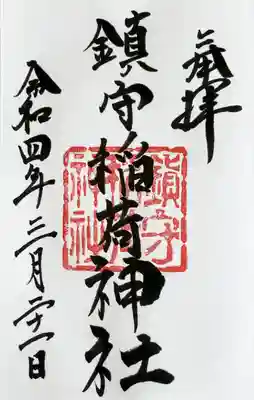 奉拝
鎮守稲荷神社
令和四年三月二十一日
鎮守
神社